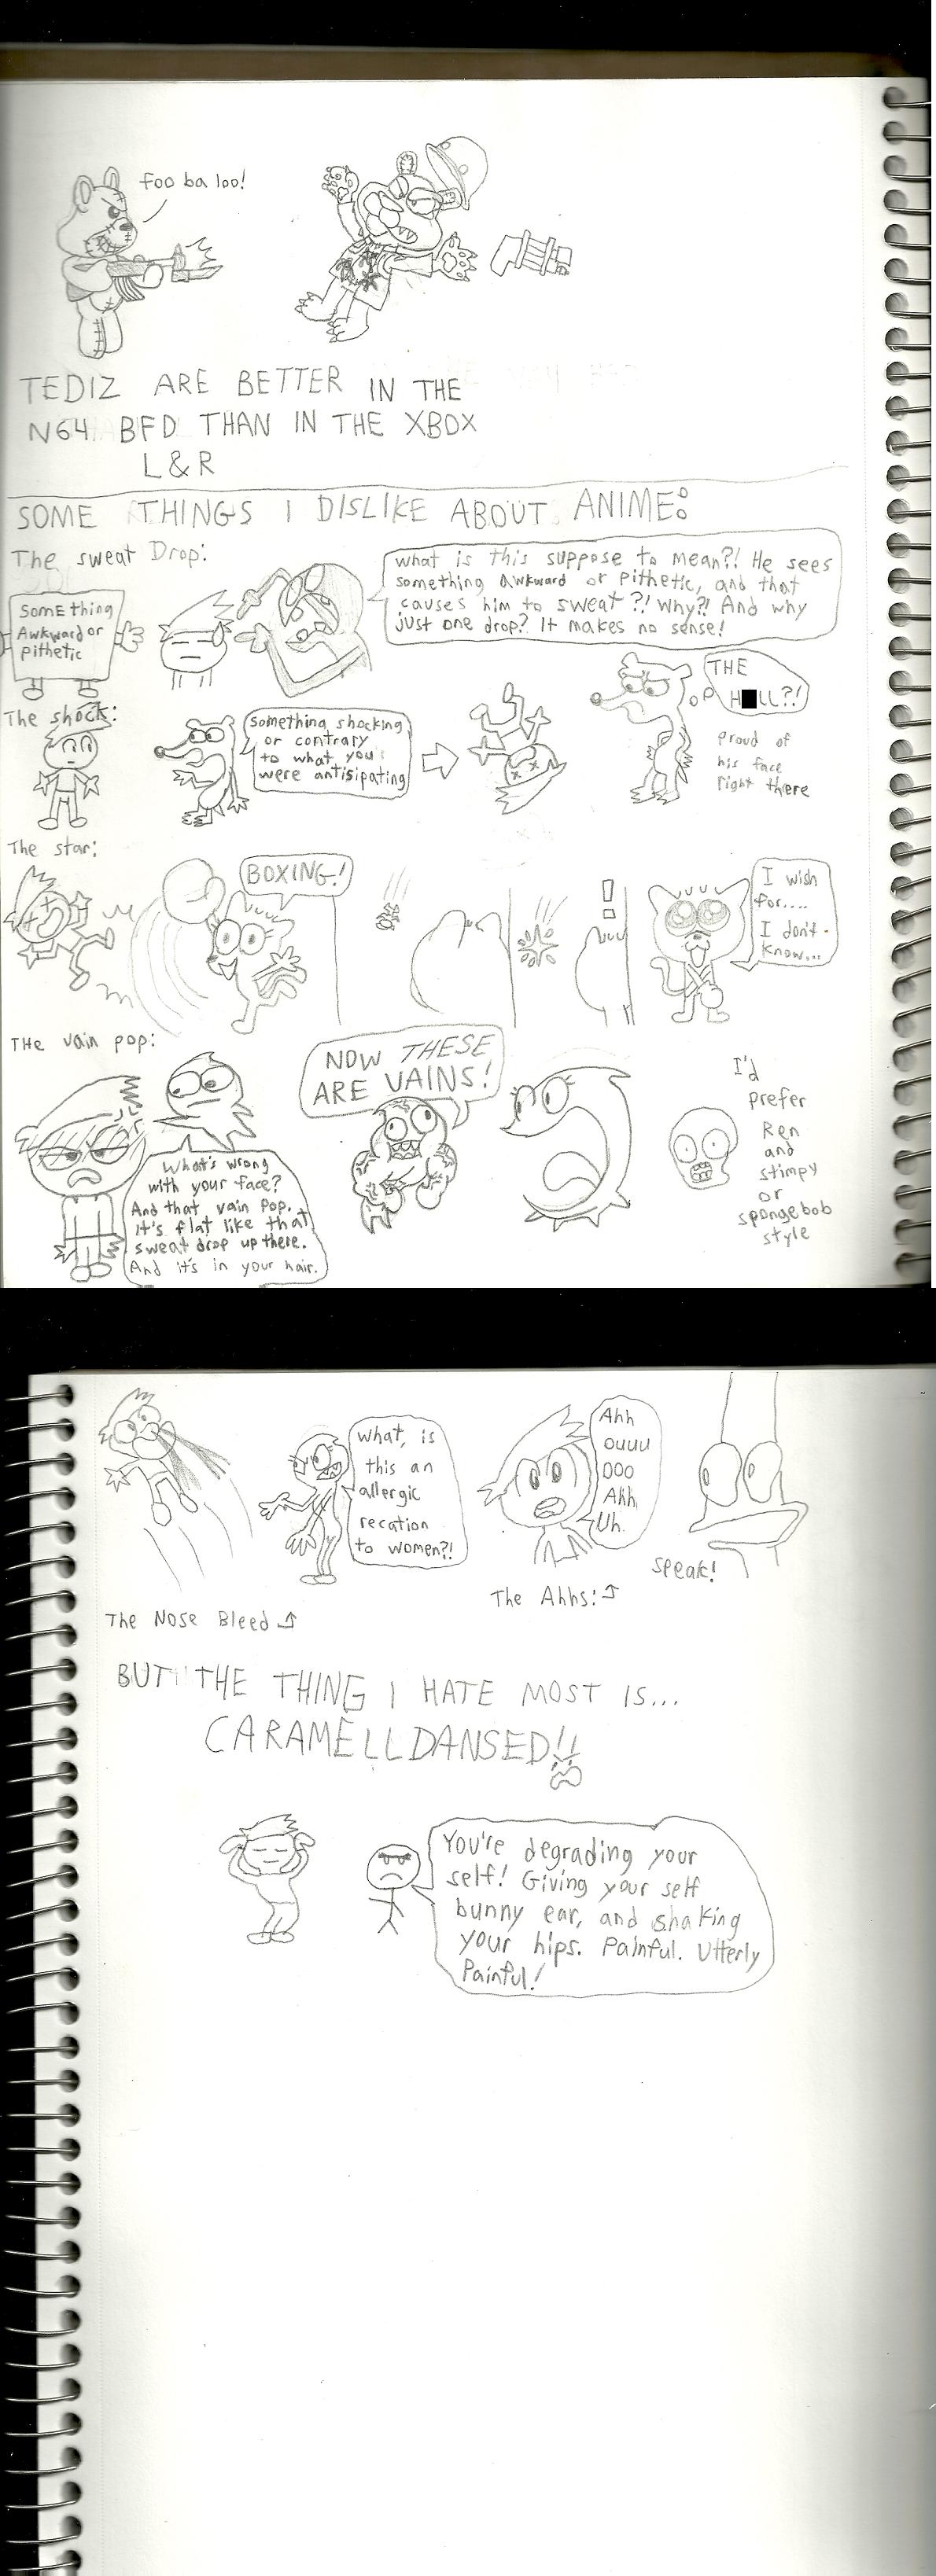 foo ba loo!
TEDIZ ARE BETTER IN THE
N64 BFD THAN IN THE XBOX
L&R
SOME THINGS I DISLIKE ABOUT ANIME:
The sweat Drop:
SomE thing
Awkward or
pithetic
what is this suppose to mean?! He sees
something Awkward or Pithetic, and that
causes him to sweat?! Why?! And why
just one drop? It makes no sense!
The shock:
Something shocking
or contrary
to what you
were antisipating
THE
H LL?!
proud of
his face
right there
The star:
BOXING!
!
I wish
for....
I don't-
know...
THe vain pop:
What's wrong
with your face?
And that vain Pop.
it's flat like that
sweat drop up there.
And it's in your hair.
NOW THESE
ARE VAINS!
I'd
prefer
Ren
and
stimpy
or
spongebob
style
what, is
this an
allergic
recation
to women?!
The Nose Bleed
Ahh
ouuu
OOO
Ahh
Uh.
The Ahhs:
speak!
BUT THE THING I HATE MOST IS...
CARAMELLDANSED!!
You're degrading your
self! Giving your self
bunny ear, and shaking
your hips. Painful. Utterly
Painful!